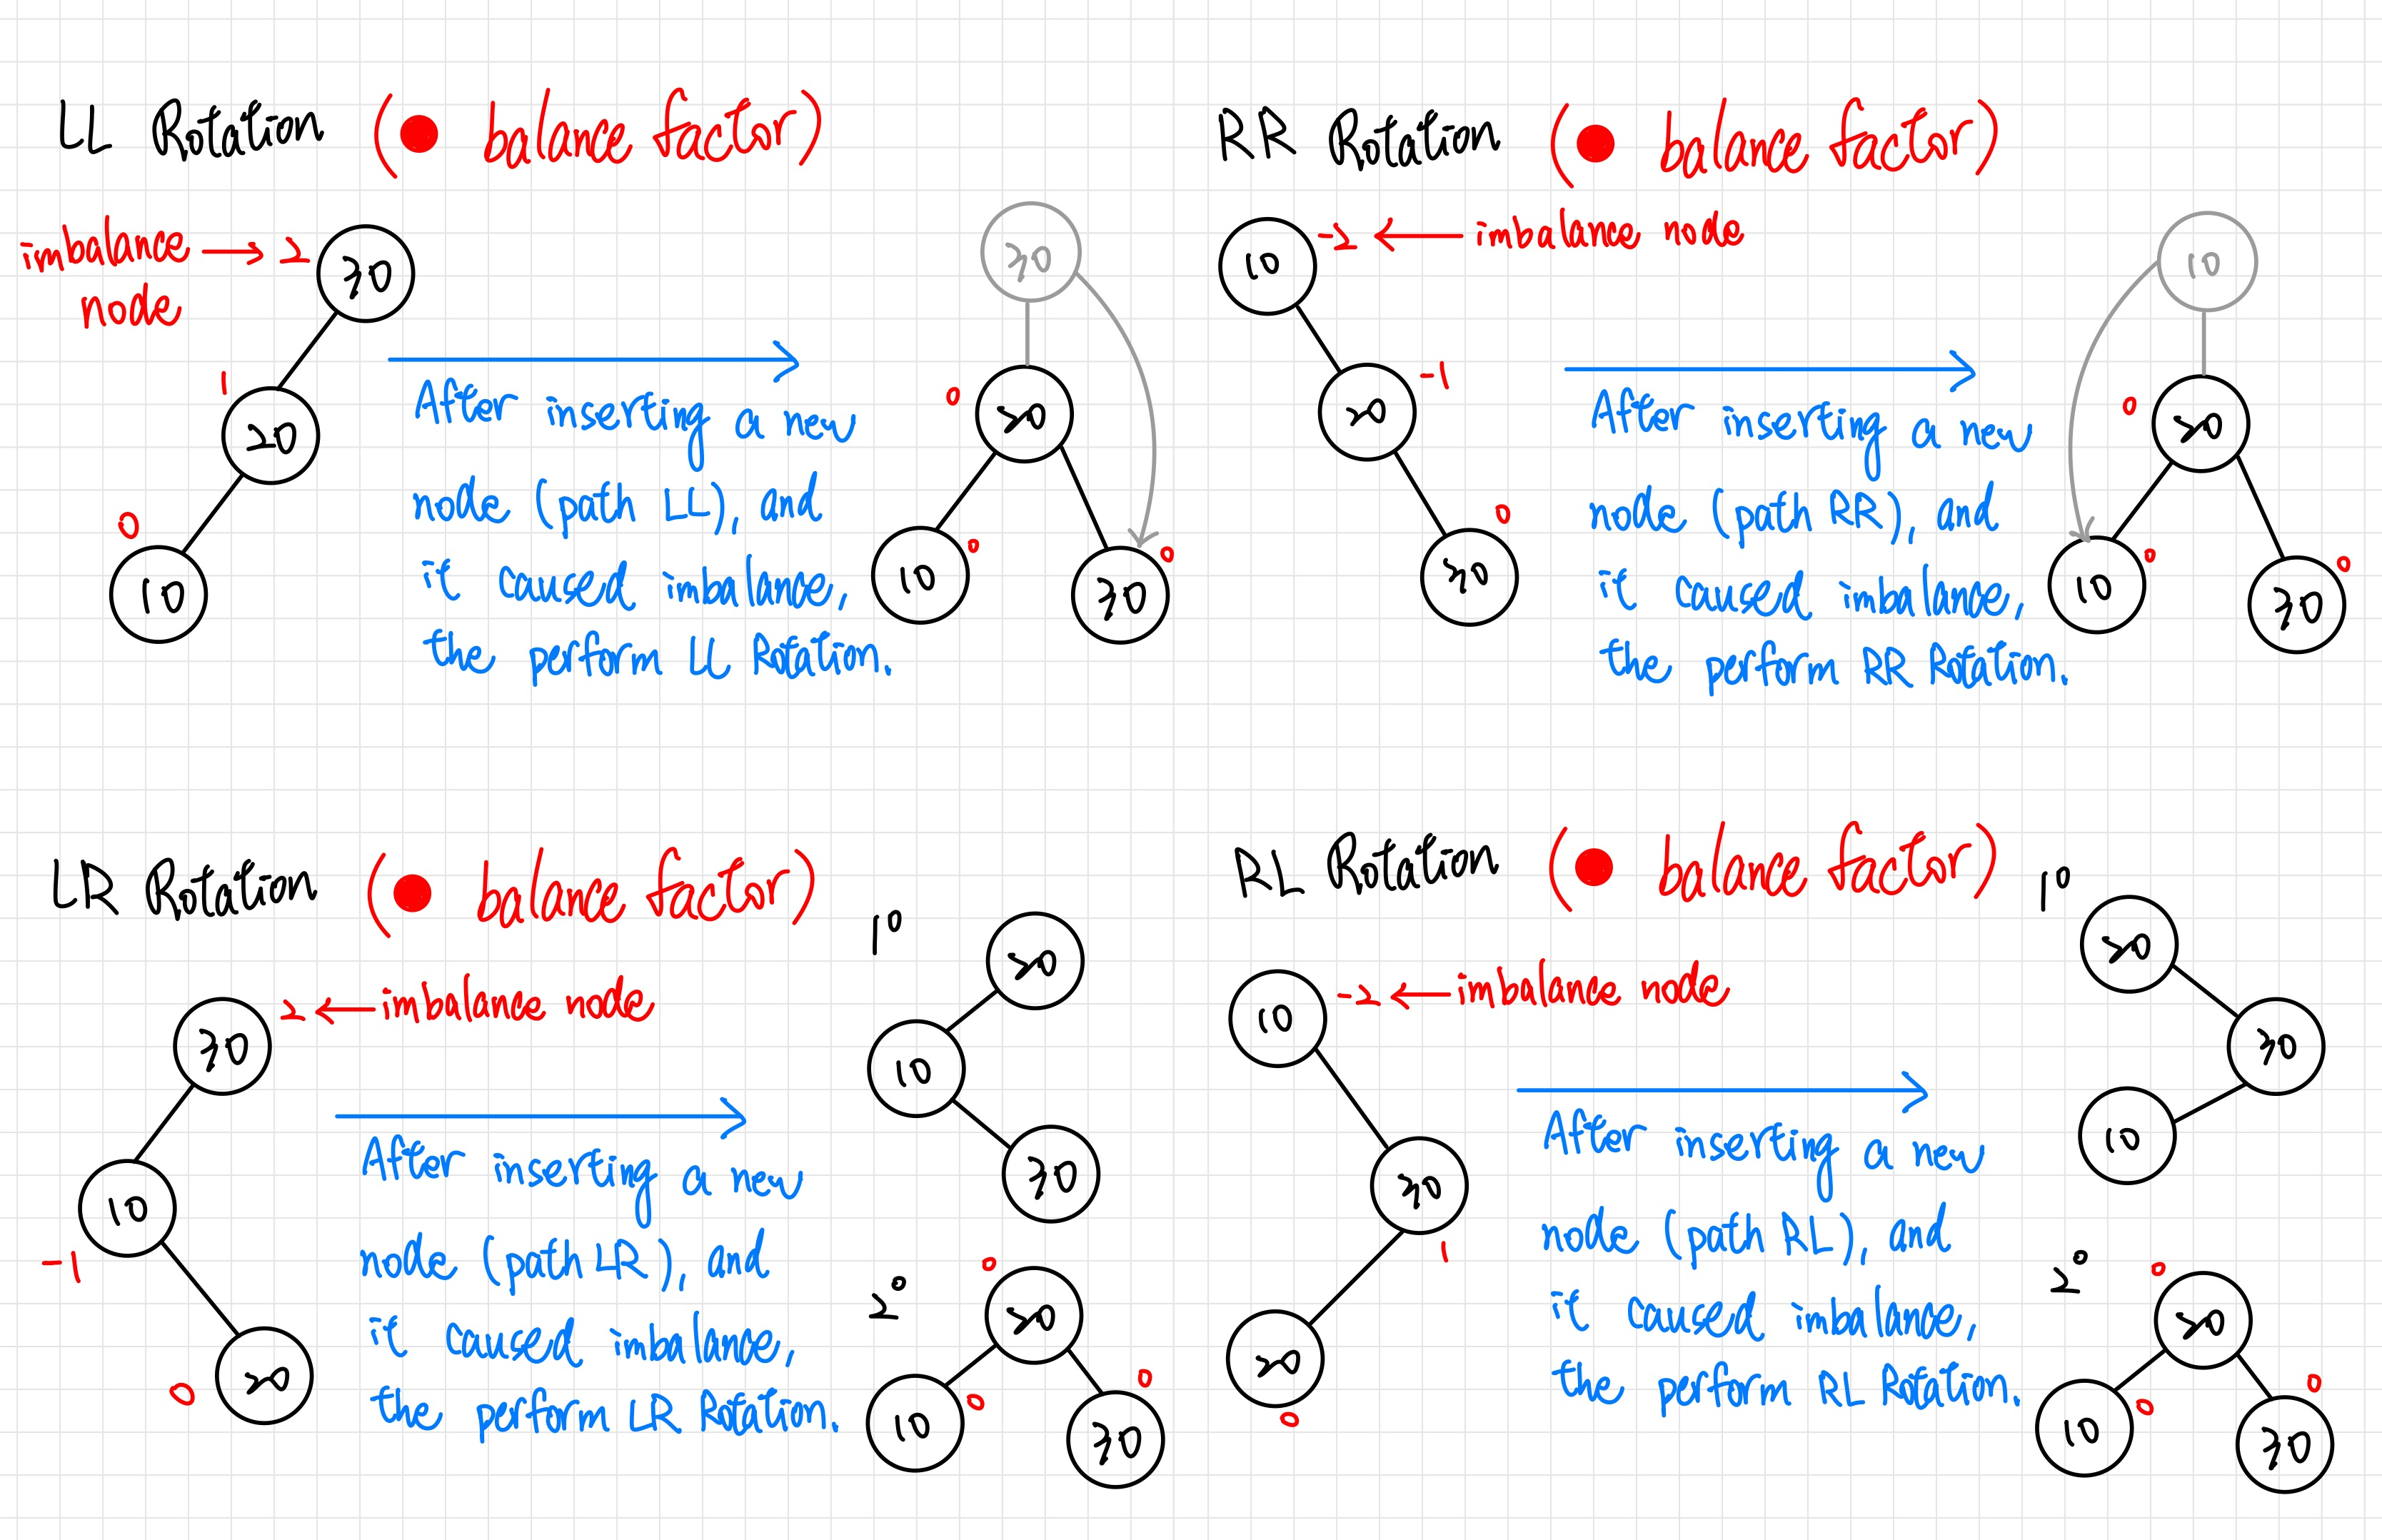 LL Rotation (● balance factor)
imbalance → 2
node
30
1
20
0
10
After inserting a new
node (path LL), and
it caused imbalance,
the perform LL Rotation.
30
0
20
10
0
30
0
RR Rotation (● balance factor)
10
-2 ← imbalance node
20
-1
0
30
After inserting a new
node (path RR), and
it caused imbalance,
the perform RR Rotation.
10
0
20
10
0
30
0
LR Rotation (● balance factor)
30
2 ← imbalance node
10
-1
0
20
After inserting a new
node (path LR), and
it caused imbalance,
the perform LR Rotation.
1°
20
10
30
2°
0
20
10
0
30
0
RL Rotation (● balance factor)
10
-2 ← imbalance node
30
1
20
0
After inserting a new
node (path RL), and
it caused imbalance,
the perform RL Rotation.
1°
20
30
10
2°
0
20
10
0
30
0